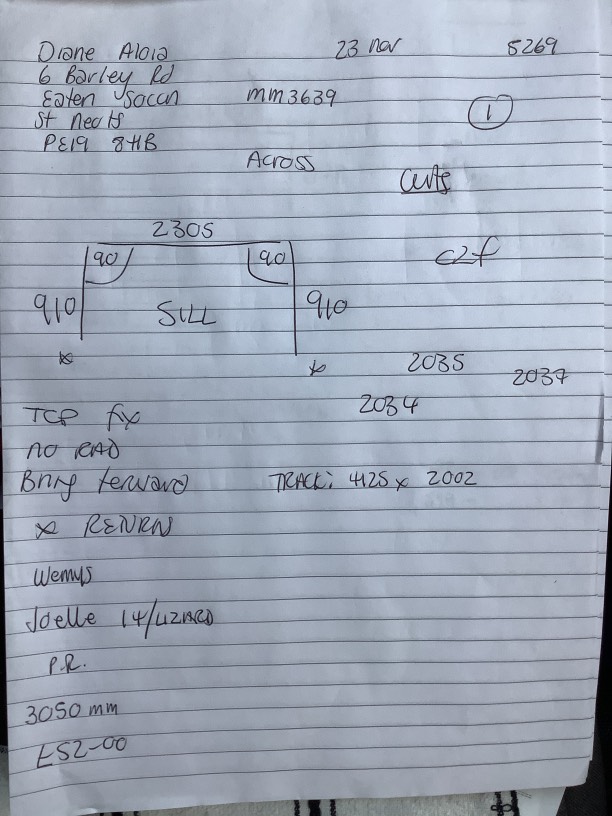 Diane Aloia 23 nov 5269
6 Barley Rd
Eaten Socon mm3639
St Neots 1
PE19 8HB
Across
2305
90 90
c2f
910 SILL 910
2035 2037
2034
TCP fix
NO RAD
Bring forward TRACK: 4125 x 2002
x RENRN
Wemys
Joelle 14/LIZARD
P.R.
3050 mm
£52-00